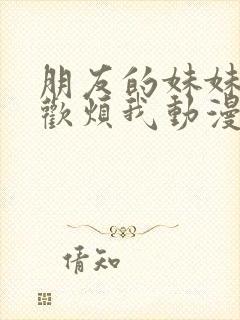 朋友的妹妹
歡煩我動漫
倩知